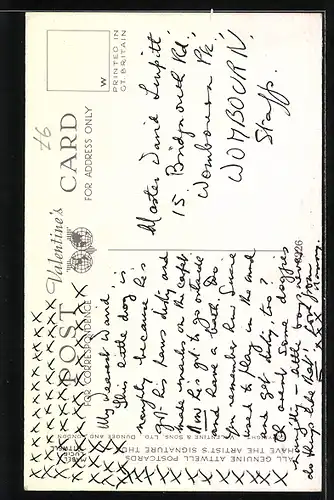 Valentine's
POST CARD
FOR CORRESPONDENCE
FOR ADDRESS ONLY
PRINTED IN
GT. BRITAIN
W
My dearest David,
This little dog is
naughty because he's
got his paws dirty and
made marks on the carpet
Now he's got to go outside
and have a bath. Do
you remember how Susie
used to play in the mud
and get dirty, too?
Oh aren't some doggies
naughty - little boys
do things like
Master David
15, Bridgnorth Rd.,
Wombourn
WOMBOURN,
Staffs.
ALL GENUINE ATTWELL POSTCARDS
HAVE THE ARTIST'S SIGNATURE
VALENTINE & SONS, LTD. DUNDEE AND LONDON